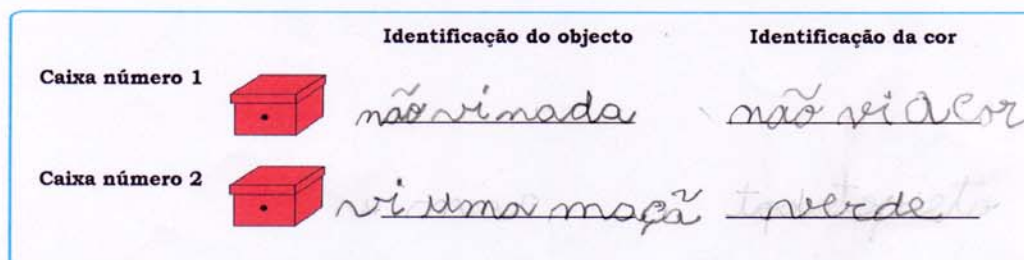 Identificação do objecto Identificação da cor
Caixa número 1 não vi nada não vi a cor
Caixa número 2 vi uma maçã verde